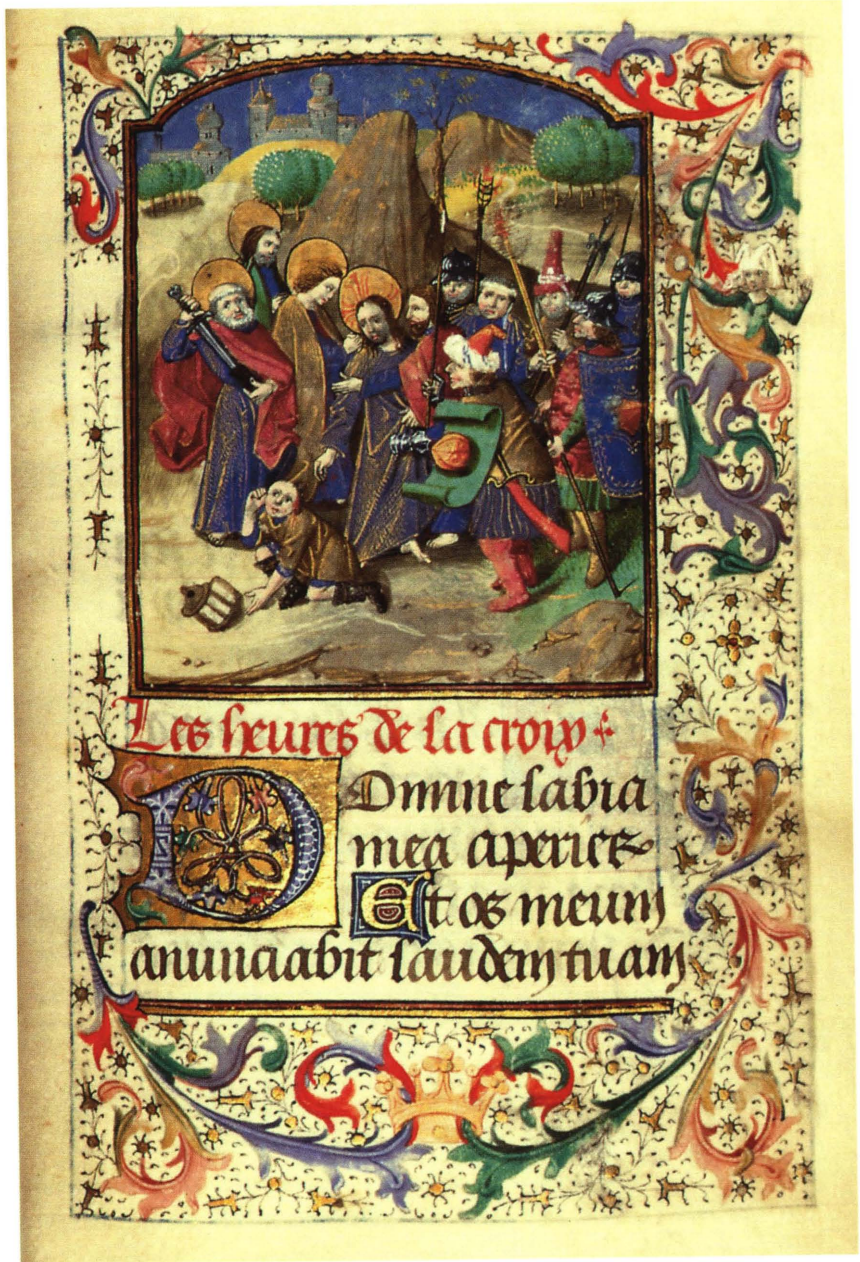 Les heures de la croix
Domine labia
mea aperies
Et os meum
anunciabit laudem tuam